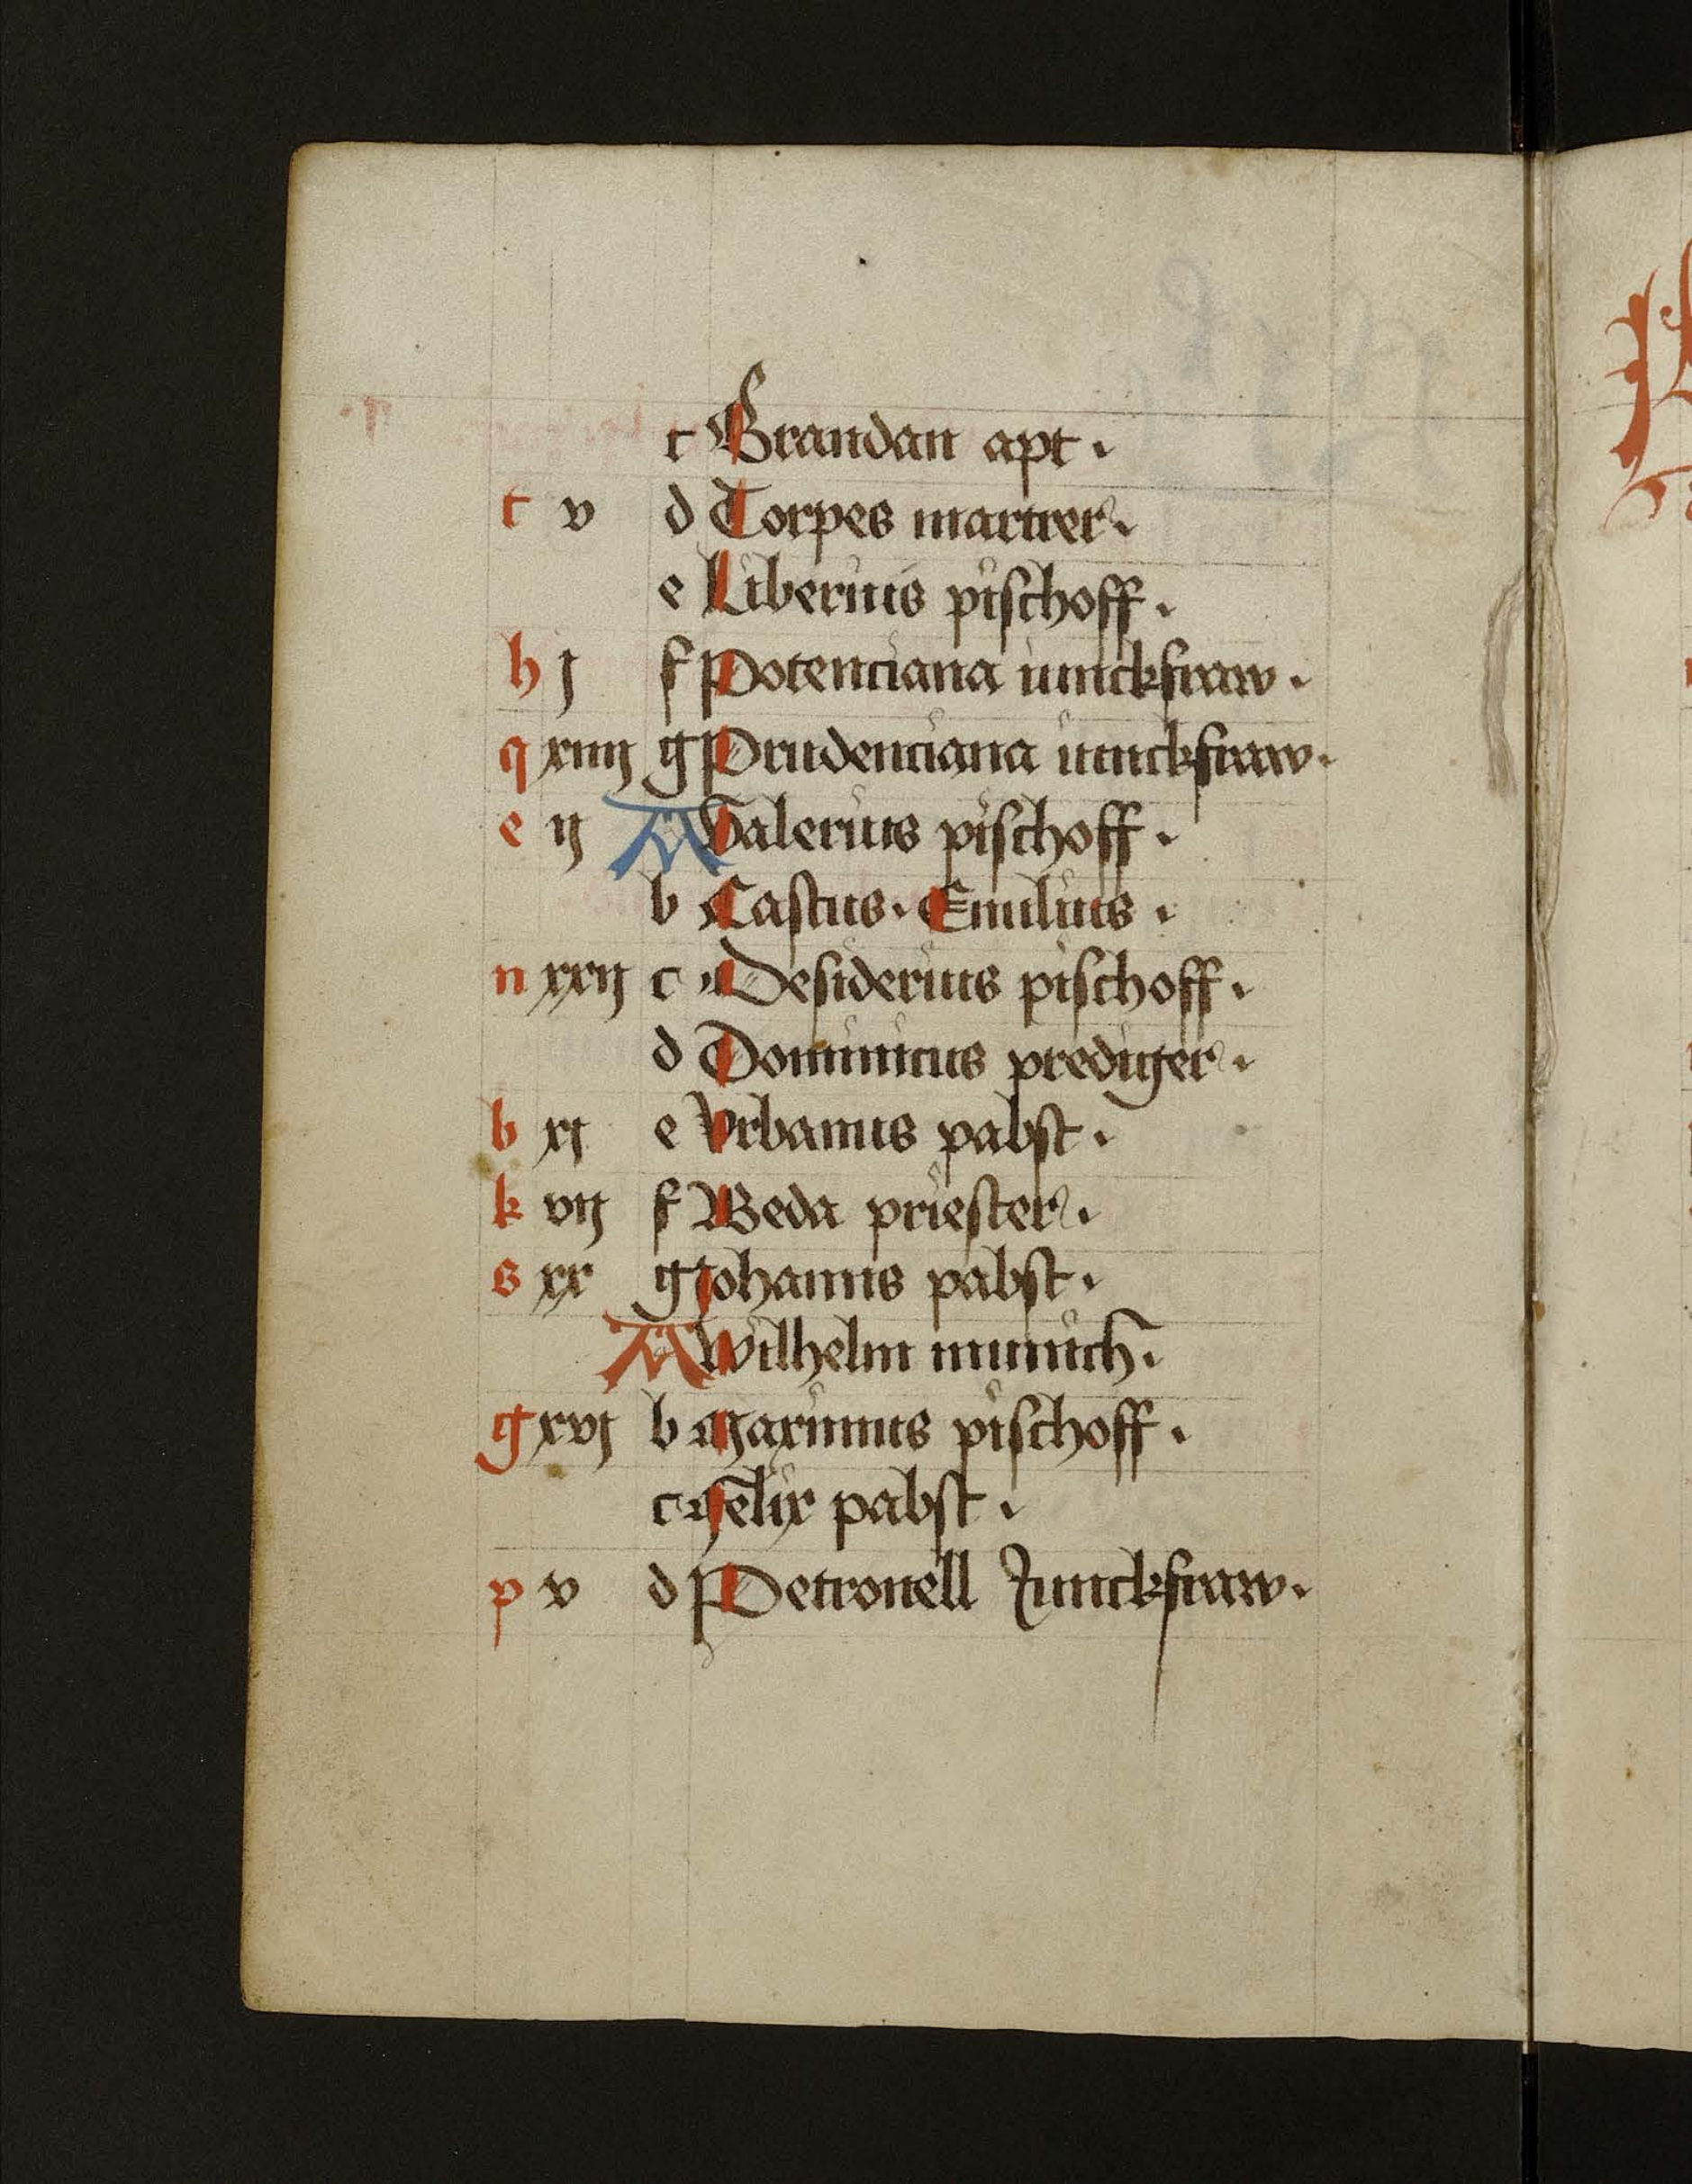 c Brandan apt.
t v d Torpes martrer.
e Liberius pischoff.
h j f Potenciana iunckfraw.
q xiiij g Prudenciana iunckfraw.
e ij A Valerius pischoff.
b Castus. Emilius.
n xxij c Desiderius pischoff.
d Dominicus prediger.
b xj e Vrbanus pabst.
k vij f Beda priester.
s xx g Johanns pabst.
A Wilhelm munich.
g xvj b Maximus pischoff.
c Felix pabst.
p v d Petronell Junckfraw.